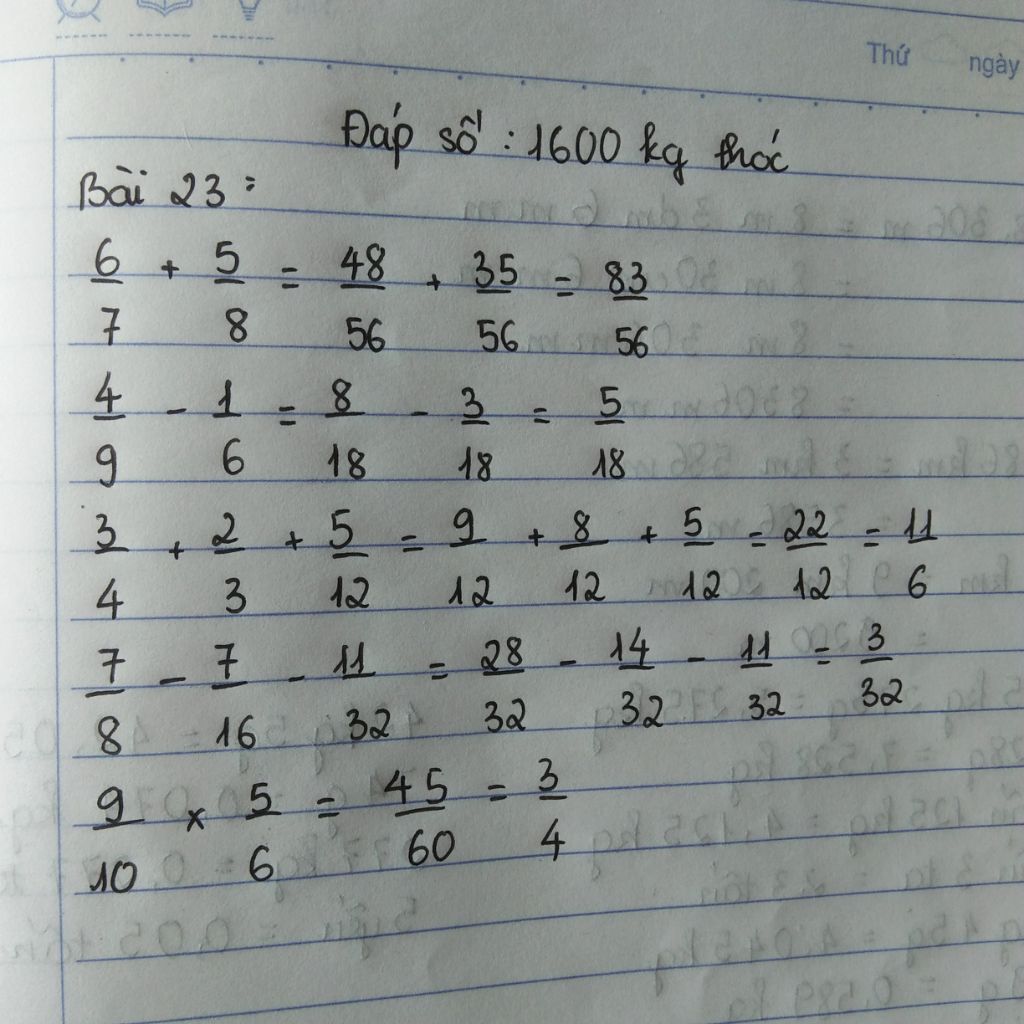 Thứ ngày
Đáp số : 1600 kg thóc
Bài 23 :
6/7 + 5/8 = 48/56 + 35/56 = 83/56
4/9 - 1/6 = 8/18 - 3/18 = 5/18
3/4 + 2/3 + 5/12 = 9/12 + 8/12 + 5/12 = 22/12 = 11/6
7/8 - 7/16 - 11/32 = 28/32 - 14/32 - 11/32 = 3/32
9/10 x 5/6 = 45/60 = 3/4